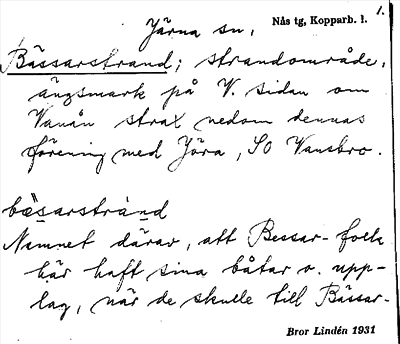 1.
Järna sn, Nås tg, Kopparb. l.
Bässarstrand; strandområde,
ängsmark på V. sidan om
Vanån strax nedom dennas
förening med Jöra, SO Vansbro.
bæsarstrànd
Namnet därav, att Bessar-folk
här haft sina båtar o. upp-
lag, när de skulle till Bässar-
Bror Lindén 1931